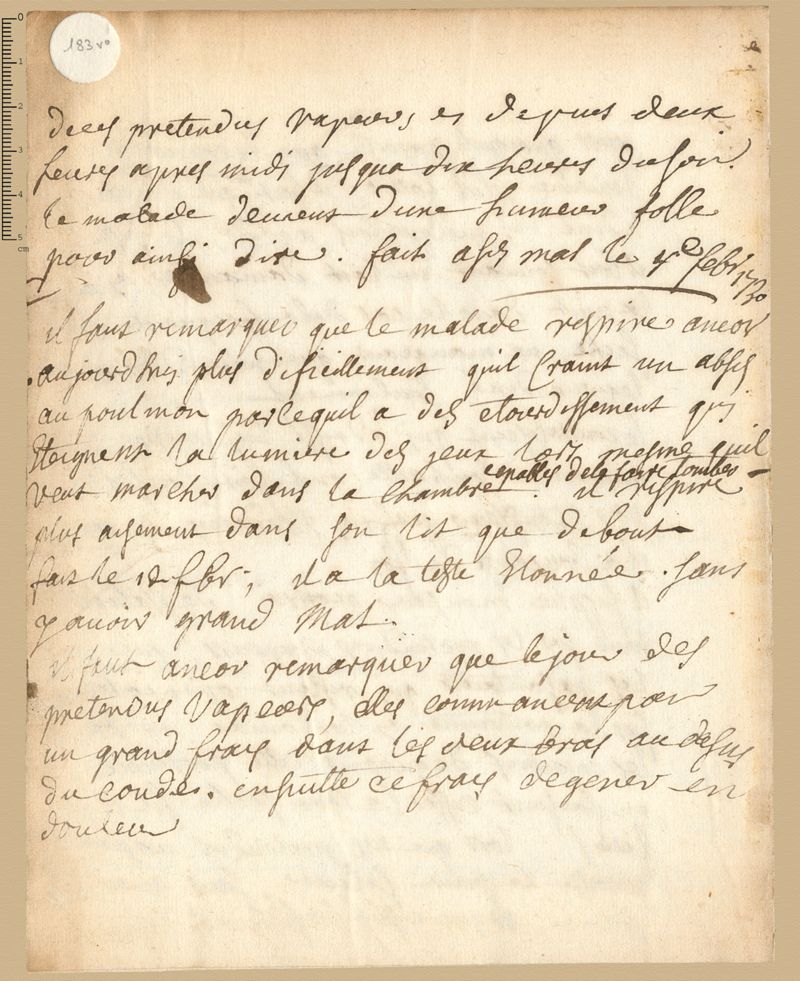 183 vo
deces pretendus vapeurs, et depuis deux
heures apres midi jusqua dix heures du soir.
le malade devient dune humeur folle
pour ainsi dire. fait a mal le febr 1730
il faut remarquer que le malade respire ancor
aujourdhuy plus dificillement quil Craint un absés
au poulmon parcequil a des etourdissement qui
Eteignent la lumiere des yeux lors mesme quil
capables dele faire tomber
veut marcher dans la chambre. il respire
plus aisement dans son lit que debout
fait le 12 fbr, il a la teste Etonnée. sans
y avoir grand mal.
il faut ancor remarquer que le jour des
pretendus vapeurs, elles commancent par
un grand frais dans les deux bras au desus
du coude. ensuitte ce frais degener en
douleur